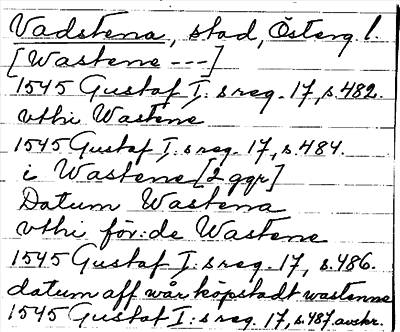 Vadstena, stad, Österg. l.
[Wastene ---]
1545 Gustaf I:s reg. 17, s. 482.
vthi Wastene
1545 Gustaf I:s reg. 17, s. 484.
i Wastene [2 ggr]
Datum Wastena
vthi för:de Wastene
1545 Gustaf I:s reg. 17, s. 486.
datum aff wår köpstadt wastenne
1545 Gustaf I:s reg. 17, s. 487 avskr.